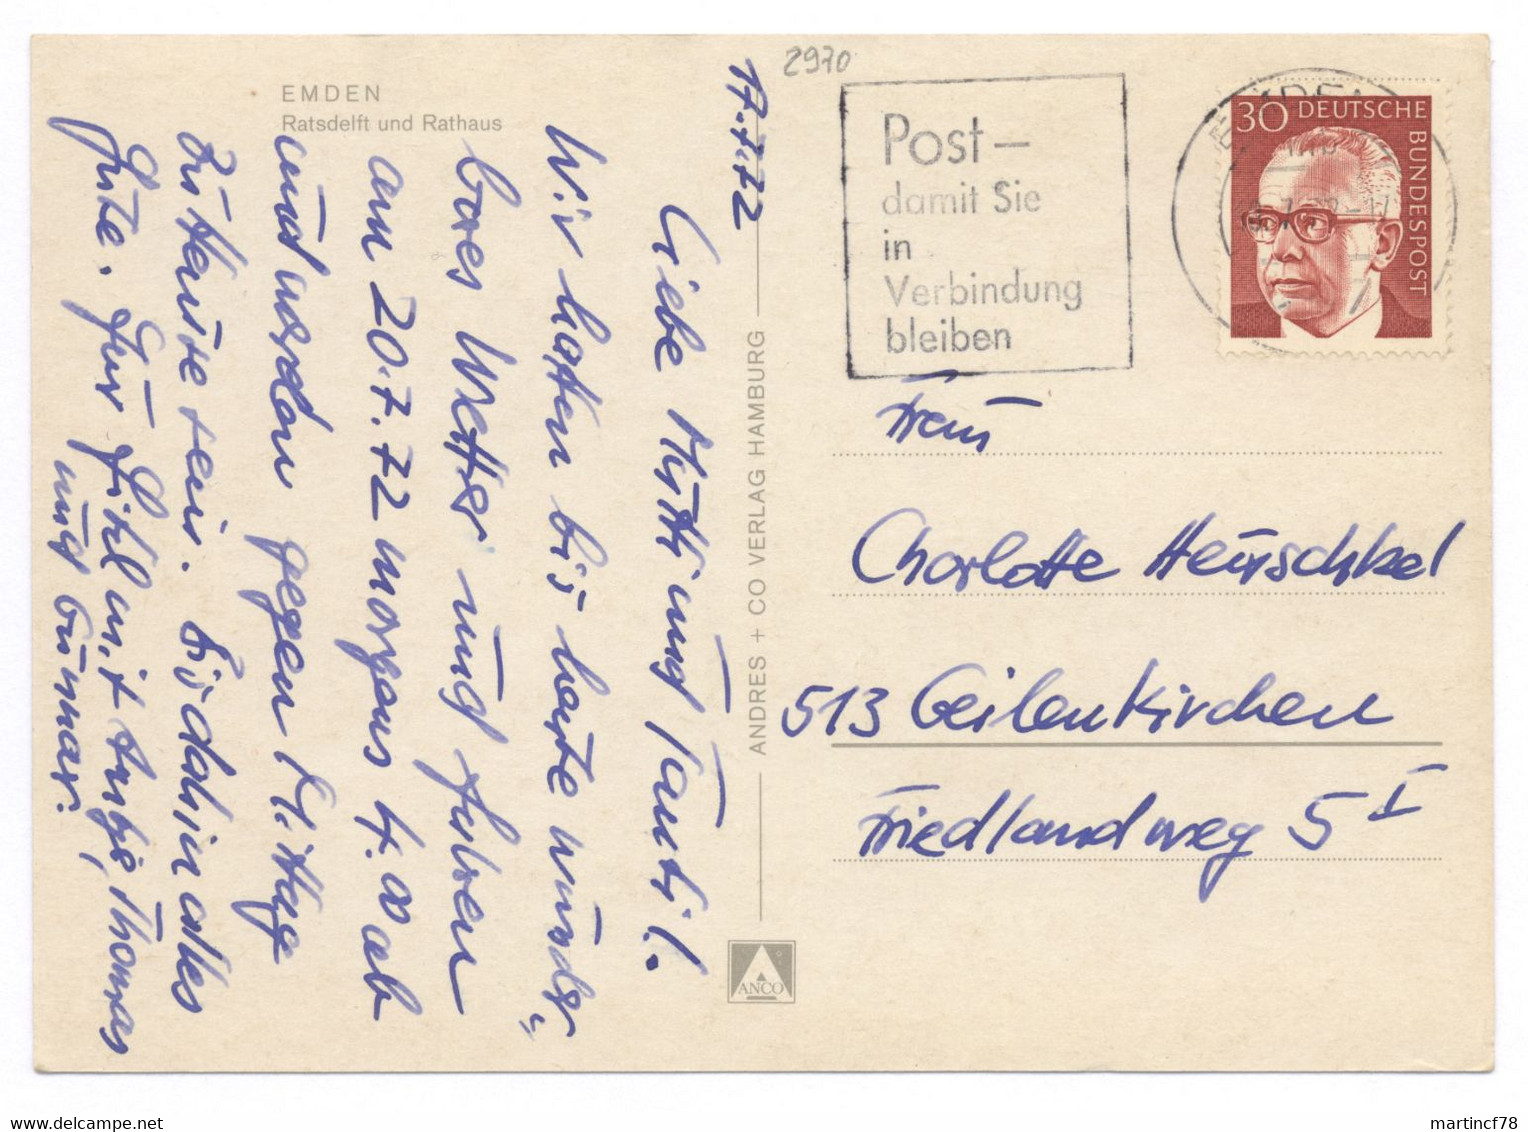 EMDEN
Ratsdelft und Rathaus
17.7.72
Liebe Mutti und Tanti!
Wir hatten bis heute wunder=
bares Wetter und fahren
am 20.7.72 morgens 4.00 ab
und werden gegen Mittag
zu Hause sein. Bis dahin alles
Gute. Euer Fihl mit Antje, Thomas
und Gunnar.
ANDRES + CO VERLAG HAMBURG
ANCO
2970
Post –
damit Sie
in
Verbindung
bleiben
30 DEUTSCHE BUNDESPOST
Frau
Charlotte Heuschkel
513 Geilenkirchen
Friedlandweg 5 I
martincf78